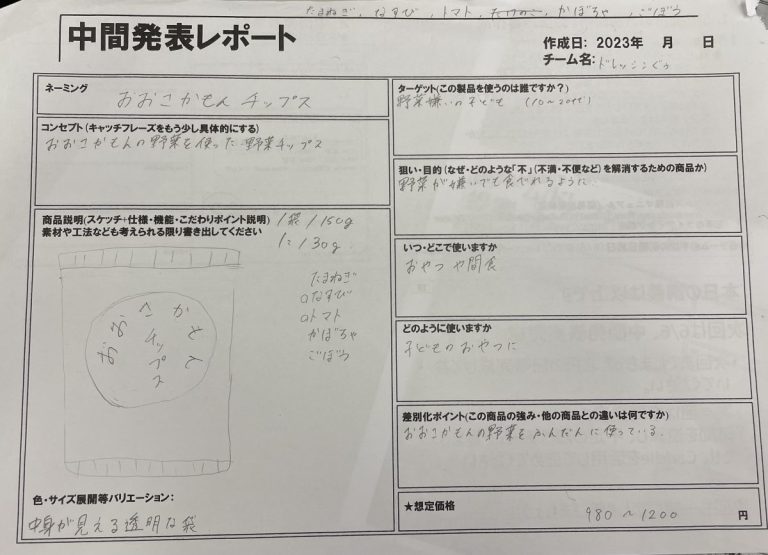 たまねぎ, なすび, トマト, たけのこ, かぼちゃ, ごぼう
中間発表レポート
作成日: 2023年　月　日
チーム名: ドレッシング
ネーミング
おおさかもんチップス
コンセプト(キャッチフレーズをもう少し具体的にする)
おおさかもんの野菜を使った野菜チップス
商品説明(スケッチ+仕様・機能・こだわりポイント説明)
素材や工法なども考えられる限り書き出してください
1袋/150g
1こ/30g
たまねぎ
なすび
トマト
かぼちゃ
ごぼう
おおさかもん
チップス
色・サイズ展開等バリエーション:
中身が見える透明な袋
ターゲット(この製品を使うのは誰ですか?)
野菜嫌いの子ども (10~20代)
狙い・目的(なぜ・どのような「不」(不満・不便など)を解消するための商品か)
野菜が嫌いでも食べれるように
いつ・どこで使いますか
おやつや間食
どのように使いますか
子どものおやつに
差別化ポイント(この商品の強み・他の商品との違いは何ですか)
おおさかもんの野菜をふんだんに使っている.
★想定価格
980~1200
円